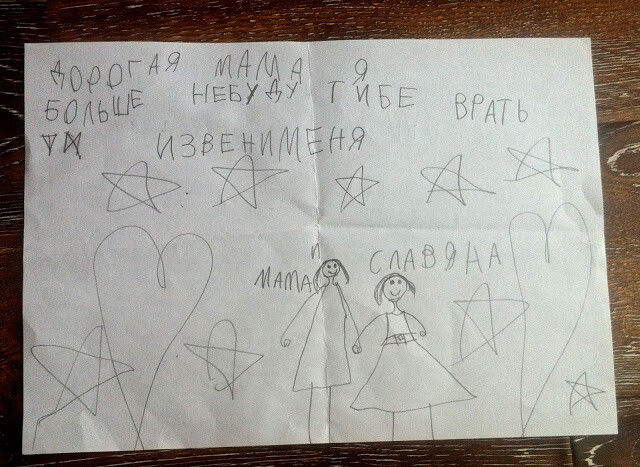 ДОРОГАЯ МАМА Я
БОЛЬШЕ НЕБУДУ ТИБЕ ВРАТЬ
ИЗВЕНИМЕНЯ
МАМА И СЛАВЯНА